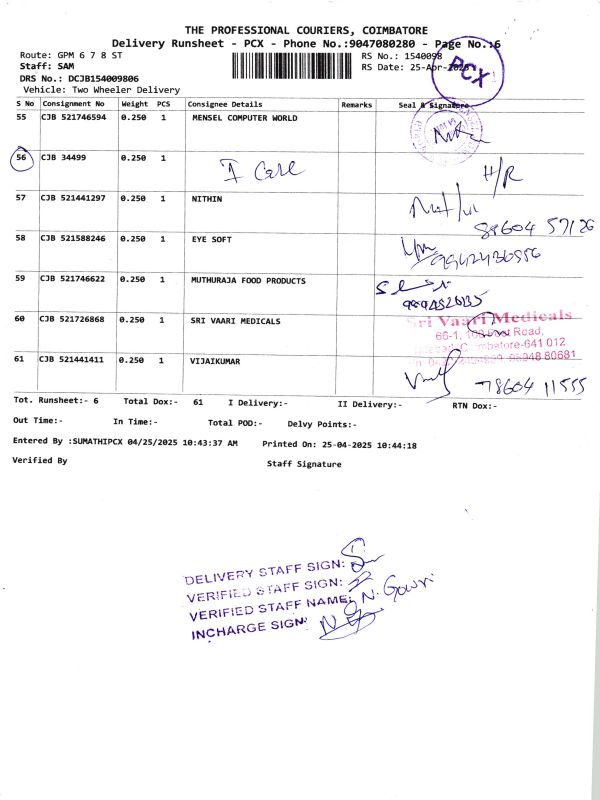 THE PROFESSIONAL COURIERS, COIMBATORE
Delivery Runsheet - PCX - Phone No.:9047080280 - Page No.:6
Route: GPM 6 7 8 ST RS No.: 1540098
Staff: SAM RS Date: 25-Apr-2025
PCX
DRS No.: DCJB154009806
Vehicle: Two Wheeler Delivery
S No Consignment No Weight PCS Consignee Details Remarks Seal & Signature
55 CJB 521746594 0.250 1 MENSEL COMPUTER WORLD
56 CJB 34499 0.250 1 I Care H/R
57 CJB 521441297 0.250 1 NITHIN
89604 57126
58 CJB 521588246 0.250 1 EYE SOFT
59 CJB 521746622 0.250 1 MUTHURAJA FOOD PRODUCTS
60 CJB 521726868 0.250 1 SRI VAARI MEDICALS Sri Vaari Medicals
66-1, Road,
Coimbatore-641 012
98948 80681
61 CJB 521441411 0.250 1 VIJAIKUMAR
78604 11555
Tot. Runsheet:- 6 Total Dox:- 61 I Delivery:- II Delivery:- RTN Dox:-
Out Time:- In Time:- Total POD:- Delvy Points:-
Entered By :SUMATHIPCX 04/25/2025 10:43:37 AM Printed On: 25-04-2025 10:44:18
Verified By Staff Signature
DELIVERY STAFF SIGN:
VERIFIED STAFF SIGN:
VERIFIED STAFF NAME: N. Gowri
INCHARGE SIGN: